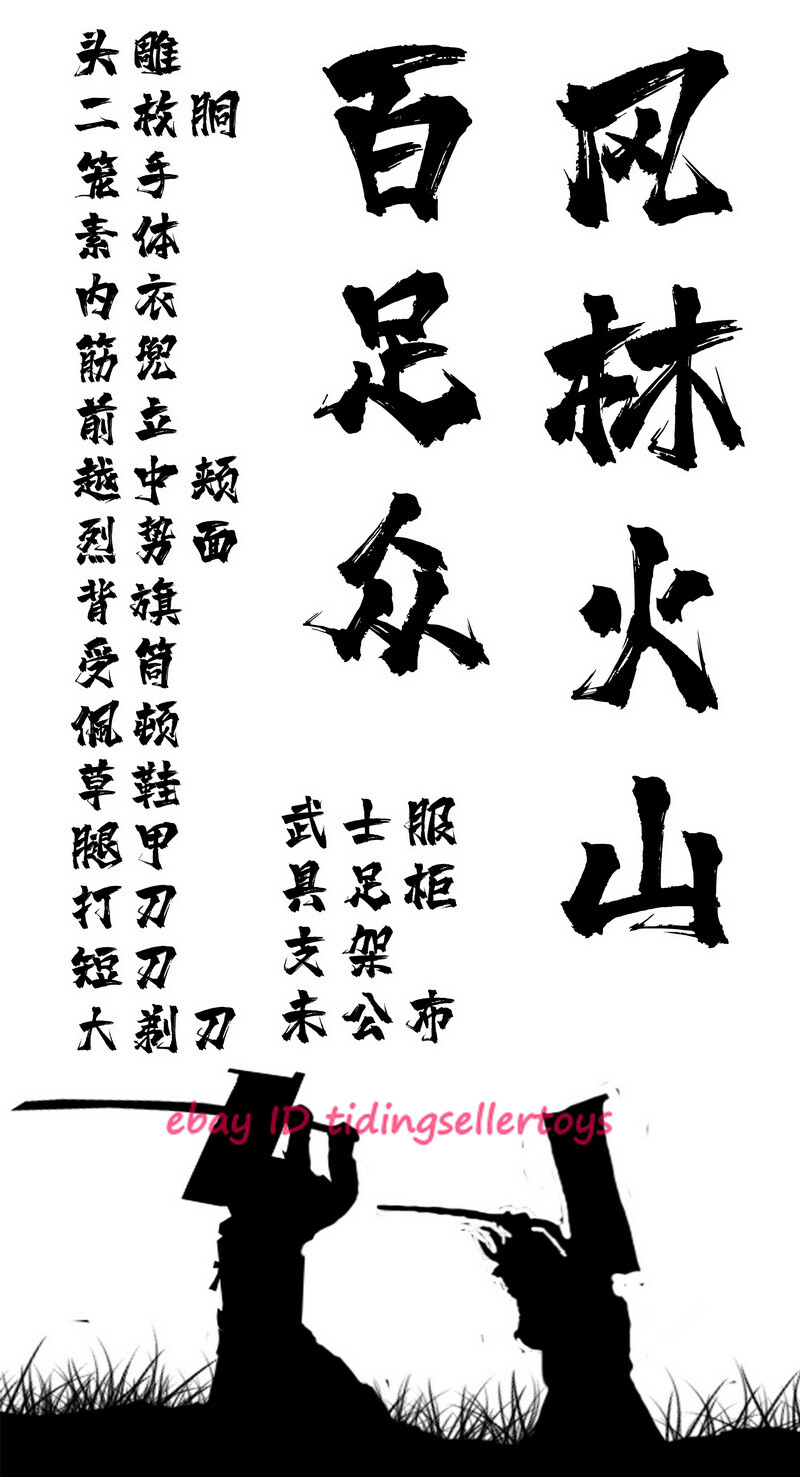 风林火山
百足众
头雕
二枚胴
笼手
素体
内衣
筋兜
前立
越中颊
烈势面
背旗
受筒
佩顿
草鞋
腿甲
打刀
短刀
大剃刀
武士服
具足柜
支架
未公布
ebay ID tidingsellertoys